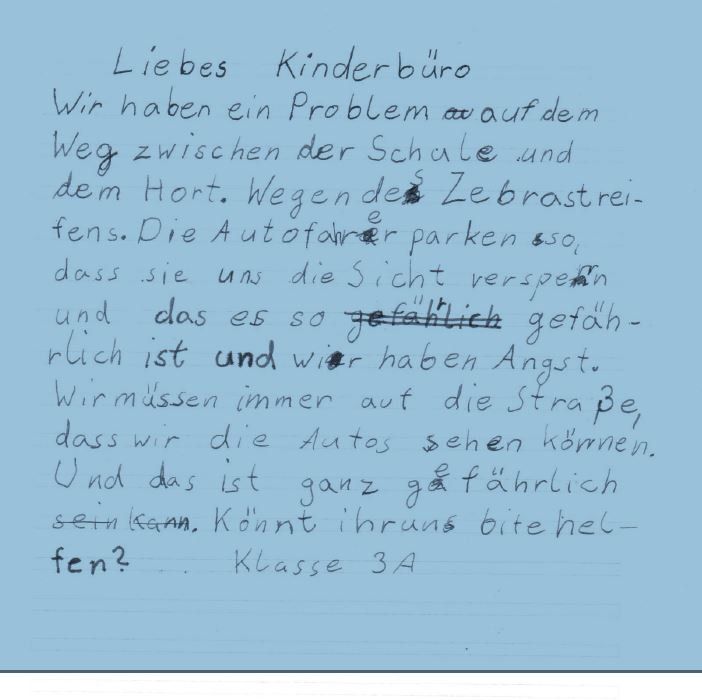 Liebes Kinderbüro
Wir haben ein Problem auf dem
Weg zwischen der Schule und
dem Hort. Wegen des Zebrastrei-
fens. Die Autofahrer parken so,
dass sie uns die Sicht versperrn
und das es so gefährlich gefäh-
rlich ist und wir haben Angst.
Wir müssen immer auf die Straße,
dass wir die Autos sehen können.
Und das ist ganz gefährlich
sein kann. Könnt ihr uns bite hel-
fen? Klasse 3A